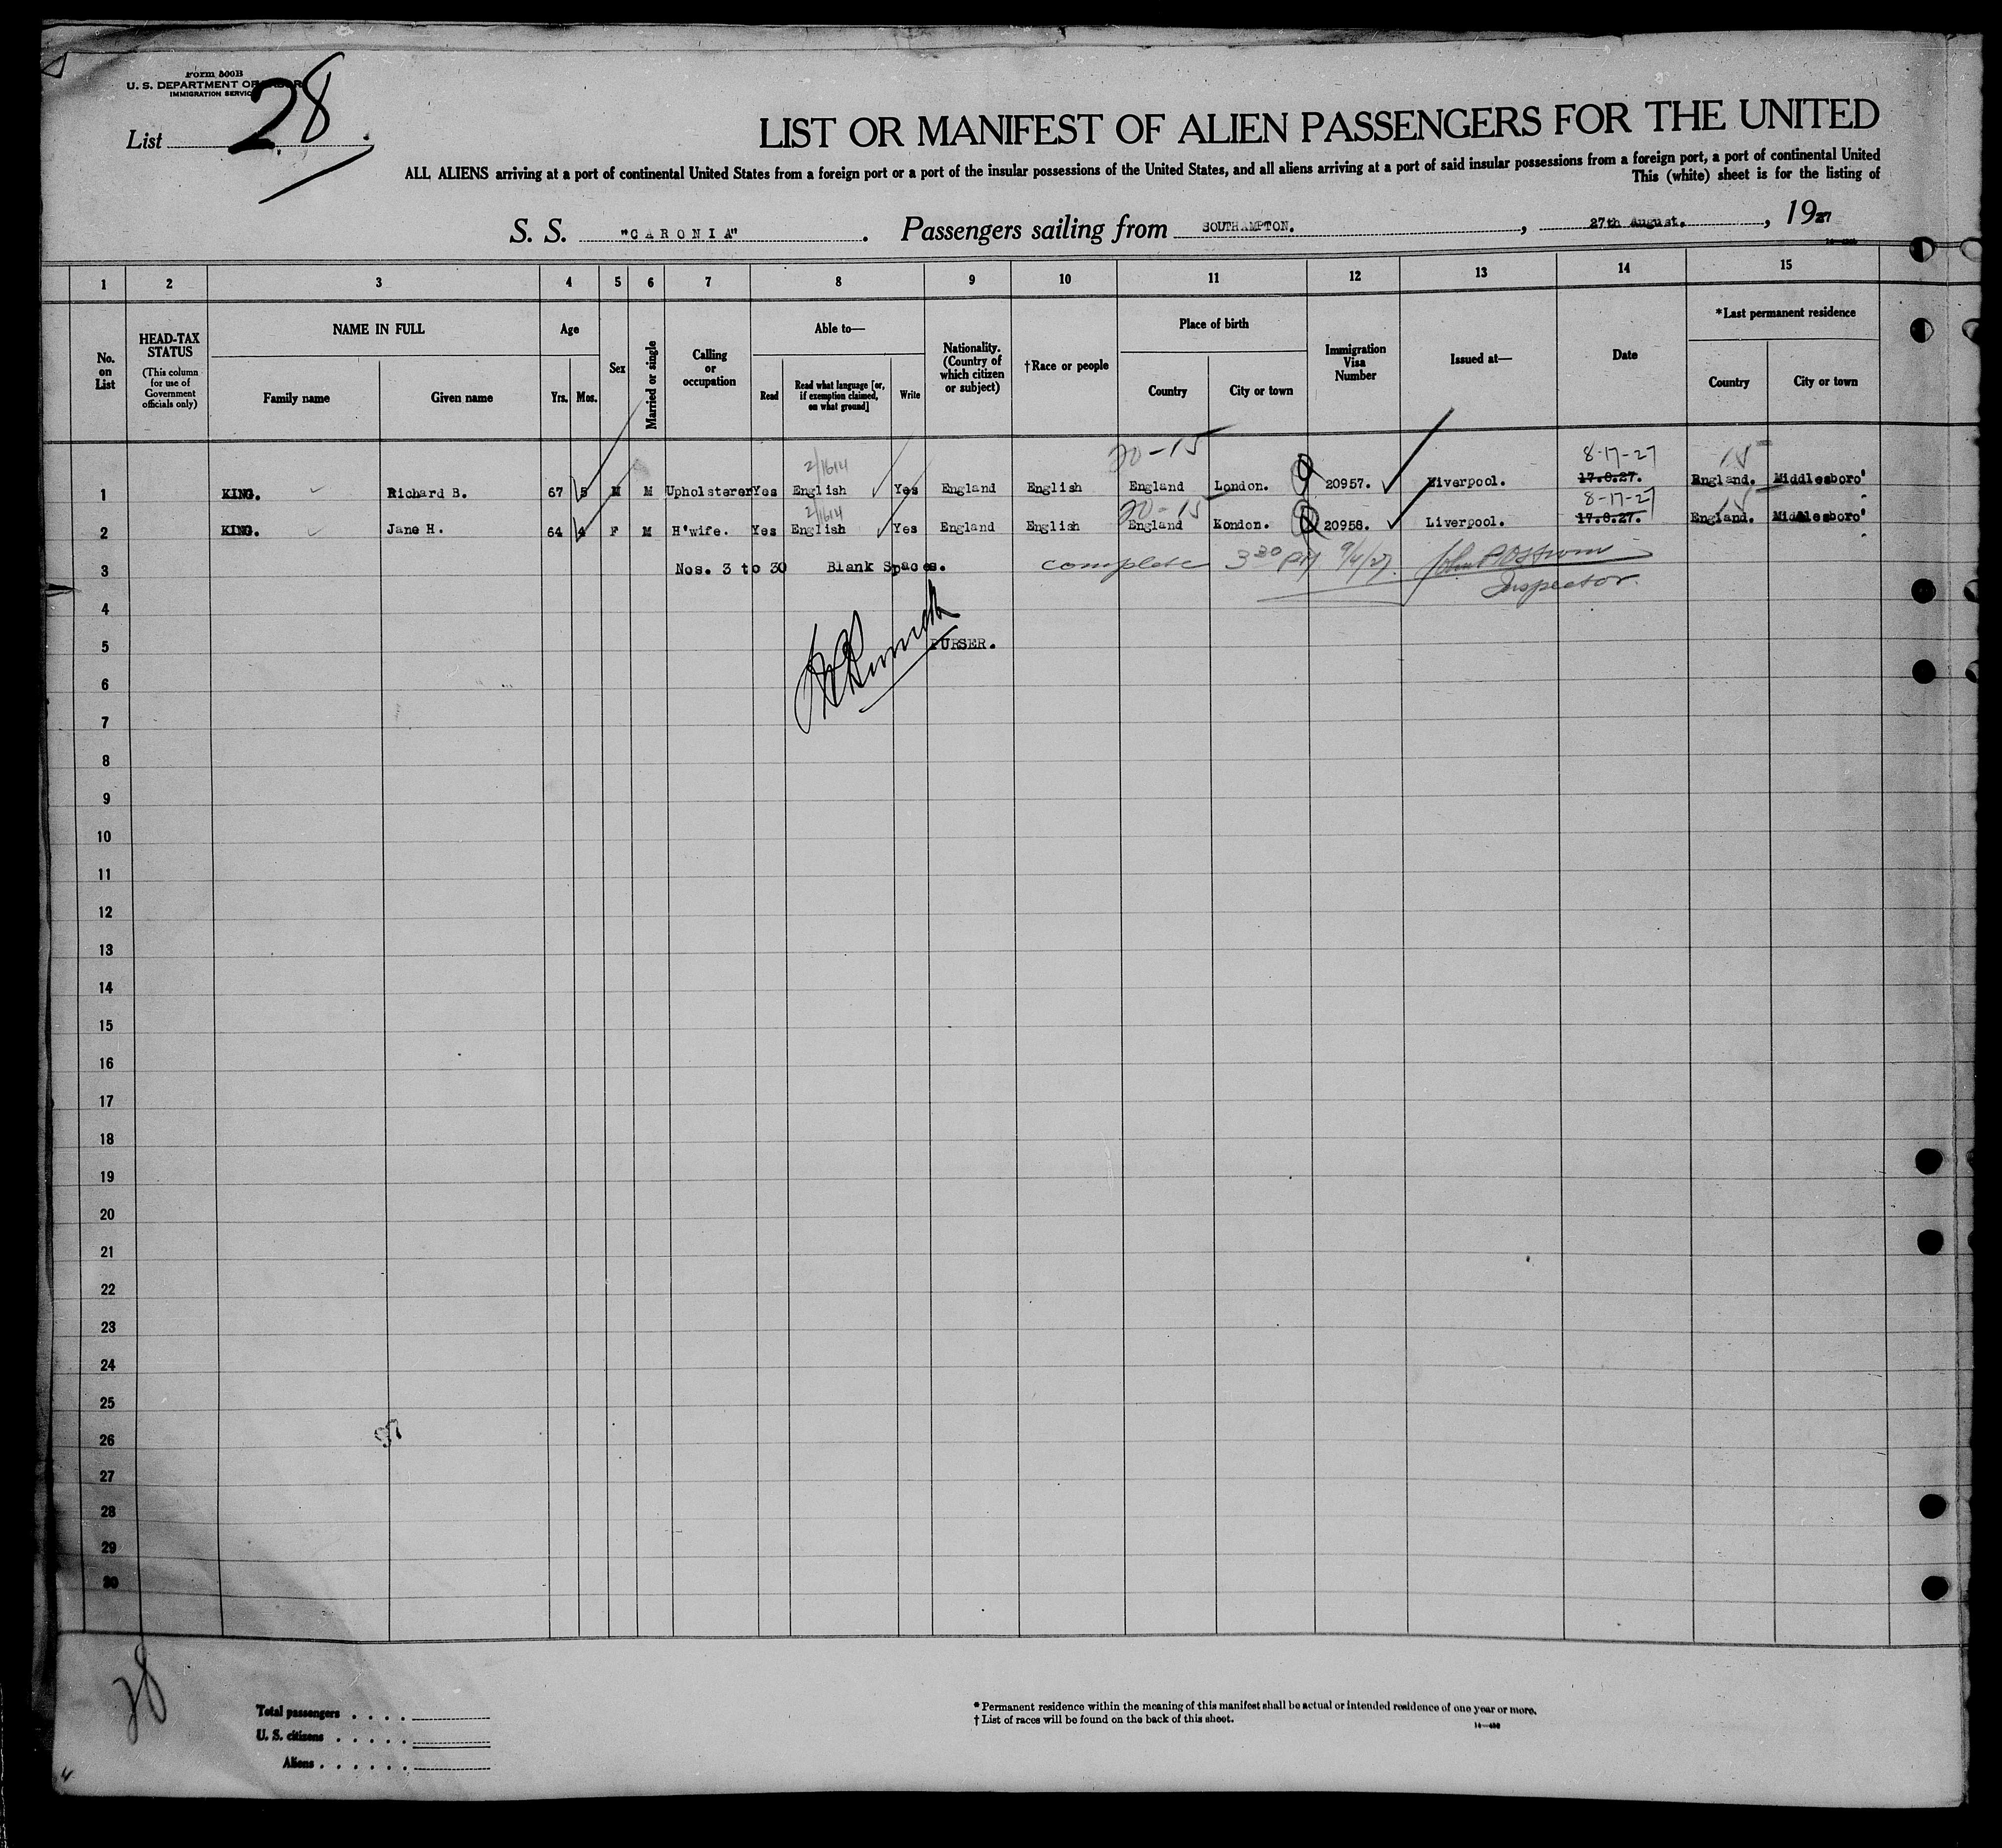 Form 500B
U. S. DEPARTMENT OF LABOR
IMMIGRATION SERVICE
List 28
LIST OR MANIFEST OF ALIEN PASSENGERS FOR THE UNITED
ALL ALIENS arriving at a port of continental United States from a foreign port or a port of the insular possessions of the United States, and all aliens arriving at a port of said insular possessions from a foreign port, a port of continental United
This (white) sheet is for the listing of
S. S. "CARONIA" . Passengers sailing from SOUTHAMPTON. , 27th August. , 1927
1 2 3 4 5 6 7 8 9 10 11 12 13 14 15
No. on List
HEAD-TAX STATUS
(This column for use of Government officials only)
NAME IN FULL
Family name Given name
Age
Yrs. Mos.
Sex
Married or single
Calling or occupation
Able to—
Read Read what language [or, if exemption claimed, on what ground] Write
Nationality. (Country of which citizen or subject)
†Race or people
Place of birth
Country City or town
Immigration Visa Number
Issued at—
Date
*Last permanent residence
Country City or town
2/1614 20-15 8-17-27 15
1 KING. Richard B. 67 5 M M Upholsterer Yes English Yes England English England London. 20957. Liverpool. 17.8.27. England. Middlesboro'
2/1614 20-15 8-17-27 15
2 KING. Jane H. 64 4 F M H'wife. Yes English Yes England English England Kondon. 20958. Liverpool. 17.8.27. England. Middlesboro'
3 Nos. 3 to 30 Blank Spaces. complete 3 30 PM 9/4/27 John
Inspector.
4
5 PURSER.
6
7
8
9
10
11
12
13
14
15
16
17
18
19
20
21
22
23
24
25
26
27
28
29
30
28
Total passengers . . . .
U. S. citizens . . . . .
Aliens . . . . . .
* Permanent residence within the meaning of this manifest shall be actual or intended residence of one year or more.
† List of races will be found on the back of this sheet.
14—430